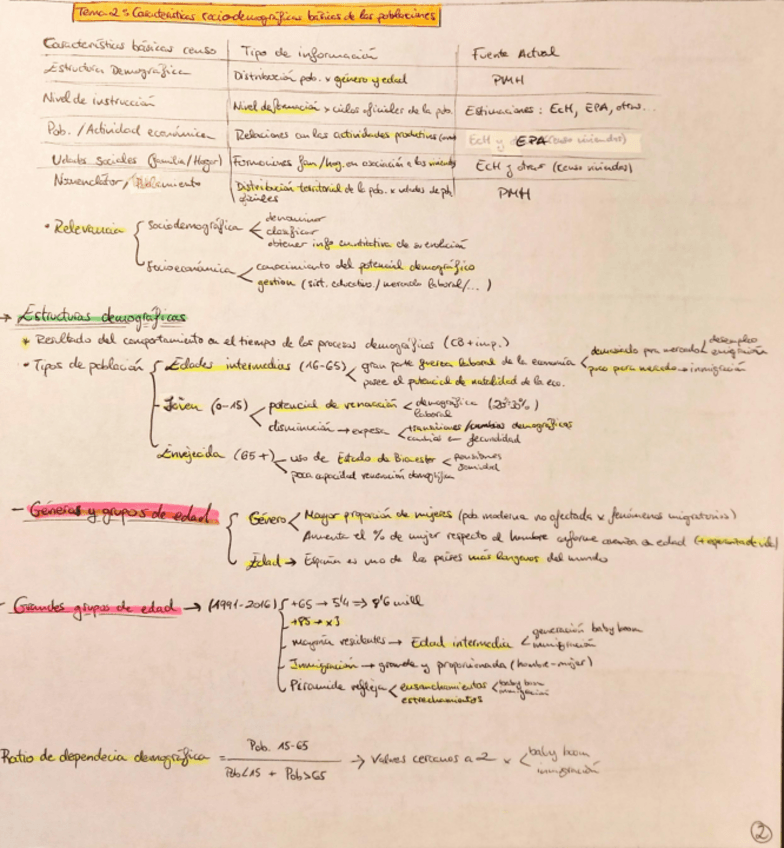 Tema 2: Características sociodemográficas básicas de las poblaciones
Características básicas censo | Tipo de información | Fuente Actual
Estructura Demográfica | Distribución pob. x género y edad | PMH
Nivel de instrucción | Nivel de formación x ciclos oficiales de la pob. | Estimaciones: EcH, EPA, otras...
Pob. / Actividad económica | Relaciones con las actividades productivas | EPA
Udades Sociales (familia/Hogar) | Formaciones fam/hog. en asociación a las viviendas | EcH y otras (censo viviendas)
Nomenclátor, | Distribución territorial de la pob. x udades de pob. | PMH
oficiales
• Relevancia
Sociodemográfica
denominar
clasificar
obtener info cuantitativa de su evolución
Socioeconómica
conocimiento del potencial demográfico
gestión (sist. educativo / mercado laboral/...)
→ Estructuras demográficas
* Resultado del comportamiento en el tiempo de los procesos demográficos (CB + imp.)
• Tipos de población
- Edades intermedias (16-65)
gran parte fuerza laboral de la economía
demasiado para mercado
desempleo
emigración
poco para mercado → inmigración
posee el potencial de natalidad de la eco.
- Joven (0-15)
potencial de renovación
demográfica (20-30%)
laboral
disminución → expresa
transiciones/cambios demográficos
cambios en fecundidad
Envejecida (65+)
uso de Estado de Bienestar
pensiones
sanidad
poca capacidad renovación demográfica
- Géneros y grupos de edad
Género
Mayor proporción de mujeres (pob. moderna no afectada x fenómenos migratorios)
Aumenta el % de mujer respecto al hombre conforme aumenta en edad (+ esperanza de vida)
Edad → España es uno de los países más longevos del mundo
- Grandes grupos de edad → (1991-2016)
+65 → 5'4 => 8'6 mill
- +85 → x3
- mayoría residentes → Edad intermedia
generación baby boom
inmigración
- Inmigración → grande y proporcionada (hombre-mujer)
Pirámide refleja
ensanchamientos
baby boom
inmigración
estrechamientos
Ratio de dependecia demográfica = Pob. 15-65 / Pob<15 + Pob>65 → Valores cercanos a 2 x
baby boom
inmigración
2